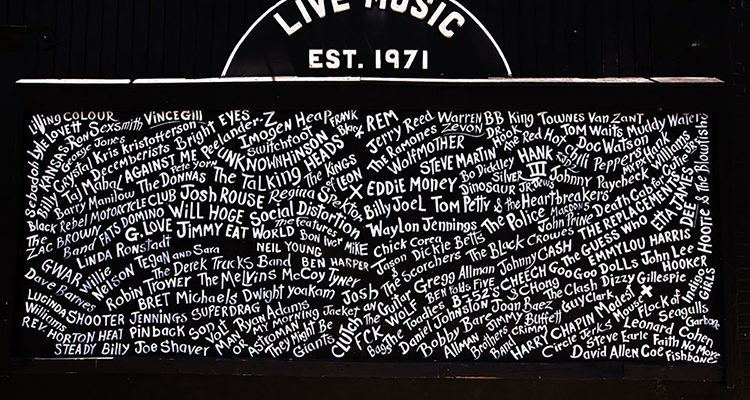 LIVE MUSIC
EST. 1971
Living COLOUR
Sexsmith
VINCE Gill
EYES
Peelander-Z
Imogen Heap
FRANK Black
REM
Jerry Reed
WARREN Zevon
BB King
TOWNES Van ZanT
Sebadoh
Lyle LoveTT
KANSAS
Ron
George Jones
Kris Kristofferson
Bright
Switchfoot
The Ramones
DR. HOOK
The Red Hot Chili Peppers
Tom Waits
Muddy Waters
Billy
Crystal
Decemberists
UNKNOWNHINSON
Wolfmother
Doc Watson
Hank Williams
Taj Mahal
AGAINST ME
Pete york
The Talking HEADS
The KINGS of LEON
STEVE MARTIN
Bo Diddley
HANK III
Barry Manilow
The DONNAS
Josh ROUSE
Regina Spektor
X
EDDIE MONEY
Dinosaur JR.
SILVER JEWS
Johnny Paycheck
Death Cab for Cutie
Black Rebel MOTORCYCLE CLUB
WILL HOGE
Social Distortion
Billy Joel
Tom Petty & the Heartbreakers
THE REPLACEMENTS
ETTA JAMES
Hootie & the Blowfish
The ZAC BROWN Band
FATS DOMINO
G. LOVE
JIMMY EAT WORLD
The features
Bon Iver
MIKE
Waylon Jennings
The Police
John Prine
The GUESS WHO
DR. DEE
LINDA Ronstadt
NEIL YOUNG
Chick Corea
Dickie Betts
The Black Crowes
EMMYLOU HARRIS
GWAR
Willie Nelson
Tegan and Sara
The Derek Trucks Band
BEN HARPER
Jason & the Scorchers
Johnny CASH
Goo Goo DOLLS
John Lee HOOKER
Dave Barnes
Robin Trower
The Melvins
McCoy Tyner
Josh
Gregg Allman
CHEECH & CHONG
Dizzy Gillespie
Indigo GIRLS
Lucinda Williams
BRET Michaels
Dwight yoakam
The Guitar WOLF
BEN folds FIVE
B-52s
The Clash
SHOOTER JENNINGS
SUPERDRAG
Ryan Adams
MY MORNING Jacket
CLUTCH
The Toadies
Joan Baez
Guy Clark
Modest Mouse
Flock of Seagulls
REV. HORTON HEAT
PINback
Son Volt
MAN OR ASTROMAN
FCK
Daniel Johnston
Jimmy Buffett
HARRY CHAPIN
X
Garbage
STEADY
Billy Joe Shaver
They Might Be Giants
Bobby Bare
Allman Brothers Band
Circle Jerks
Steve Earle
Leonard Cohen
Faith No More
David Allen Coe
Fishbone